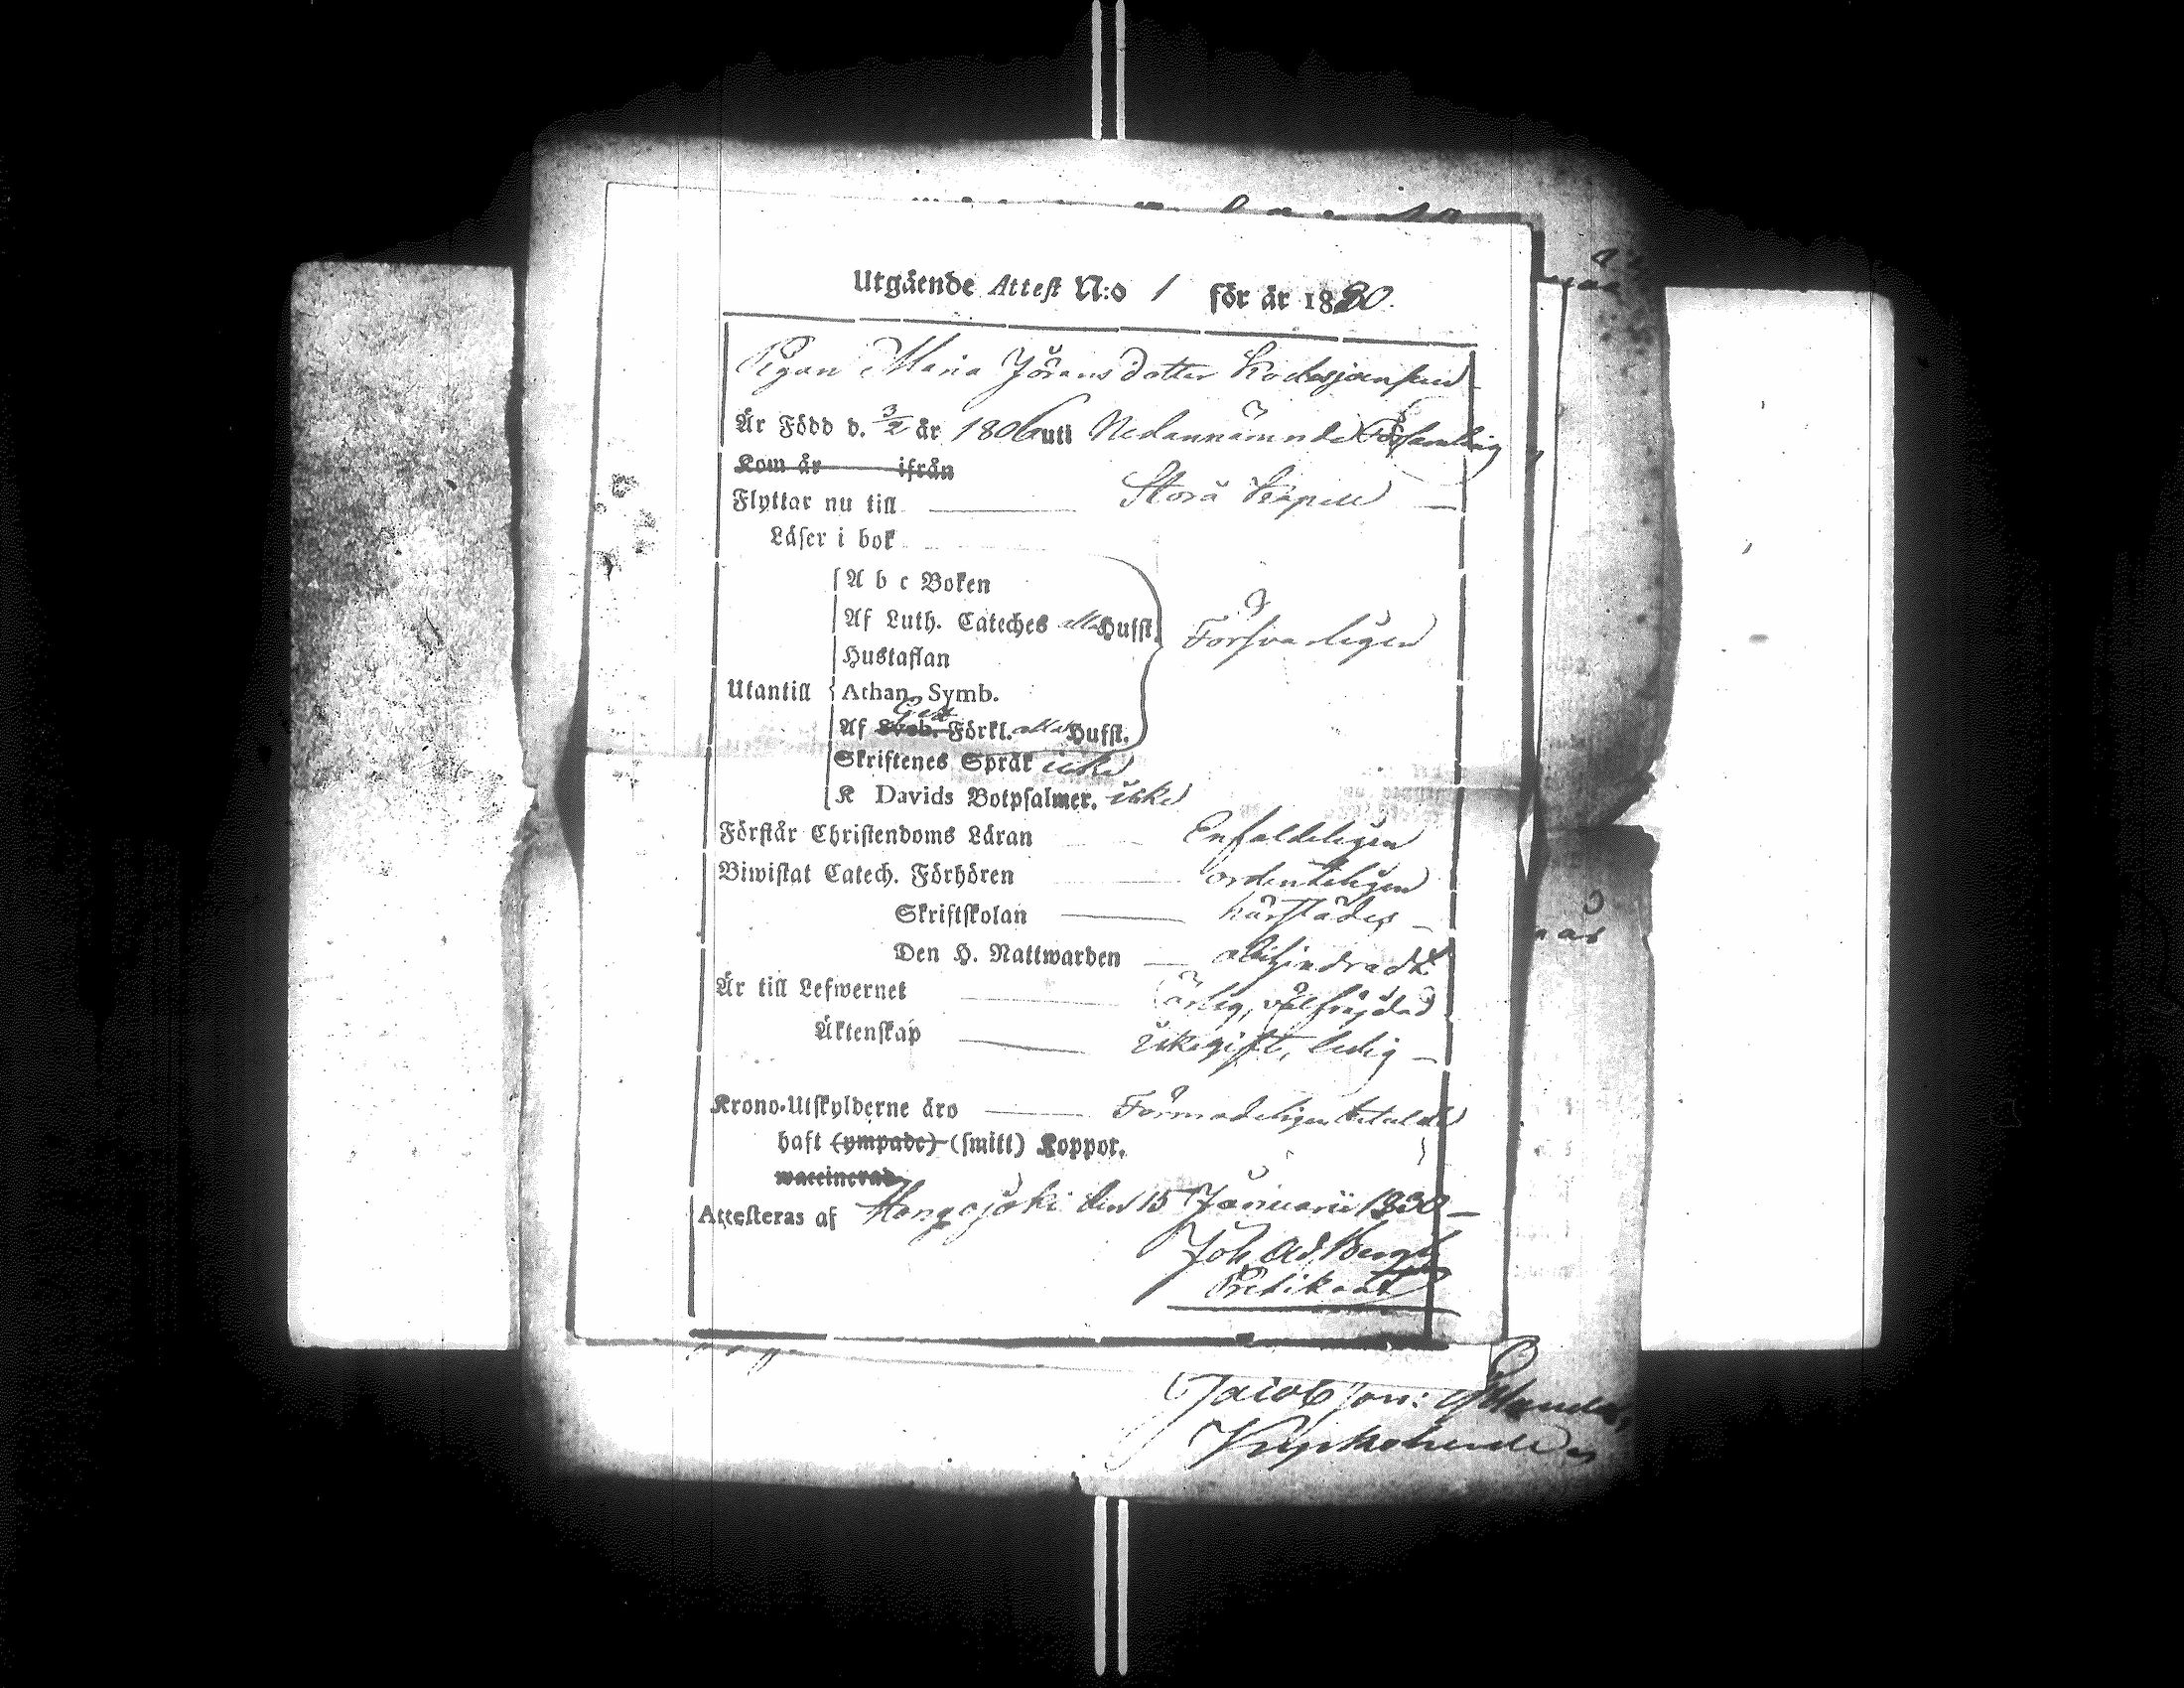 Utgående Attest N:o 1 för år 1830.
Pigan Maria Jöransdotter
Är Född d. 3/2 år 1806 uti Nedannämnde Församling
Kom år ifrån
Flyttar nu till Storå Kapell
Läser i bok
A b c Boken
Af Luth. Cateches alla Hufst.
Hustaflan
Försvarligen
Utantill Athan. Symb.
Af Sveb. Förkl. alla Hufst.
Skriftenes Språk icke
K Davids Botpsalmer. icke
Förstår Christendoms Läran Enfaldeligen
Biwistat Catech. Förhören ordenteligen
Skriftskolan härstädes
Den H. Nattwarden obehindradt
Är till Lefwernet ärlig, välfräjdad
Äktenskap icke gift, ledig
Krono-Utskylderne äro betalde
haft (ympade) (smitt) Koppor.
waccinerad
Attesteras af Hongojoki den 15 Januarii 1830
Joh. Ad. Bergh
Predikant
Jacob Jon: